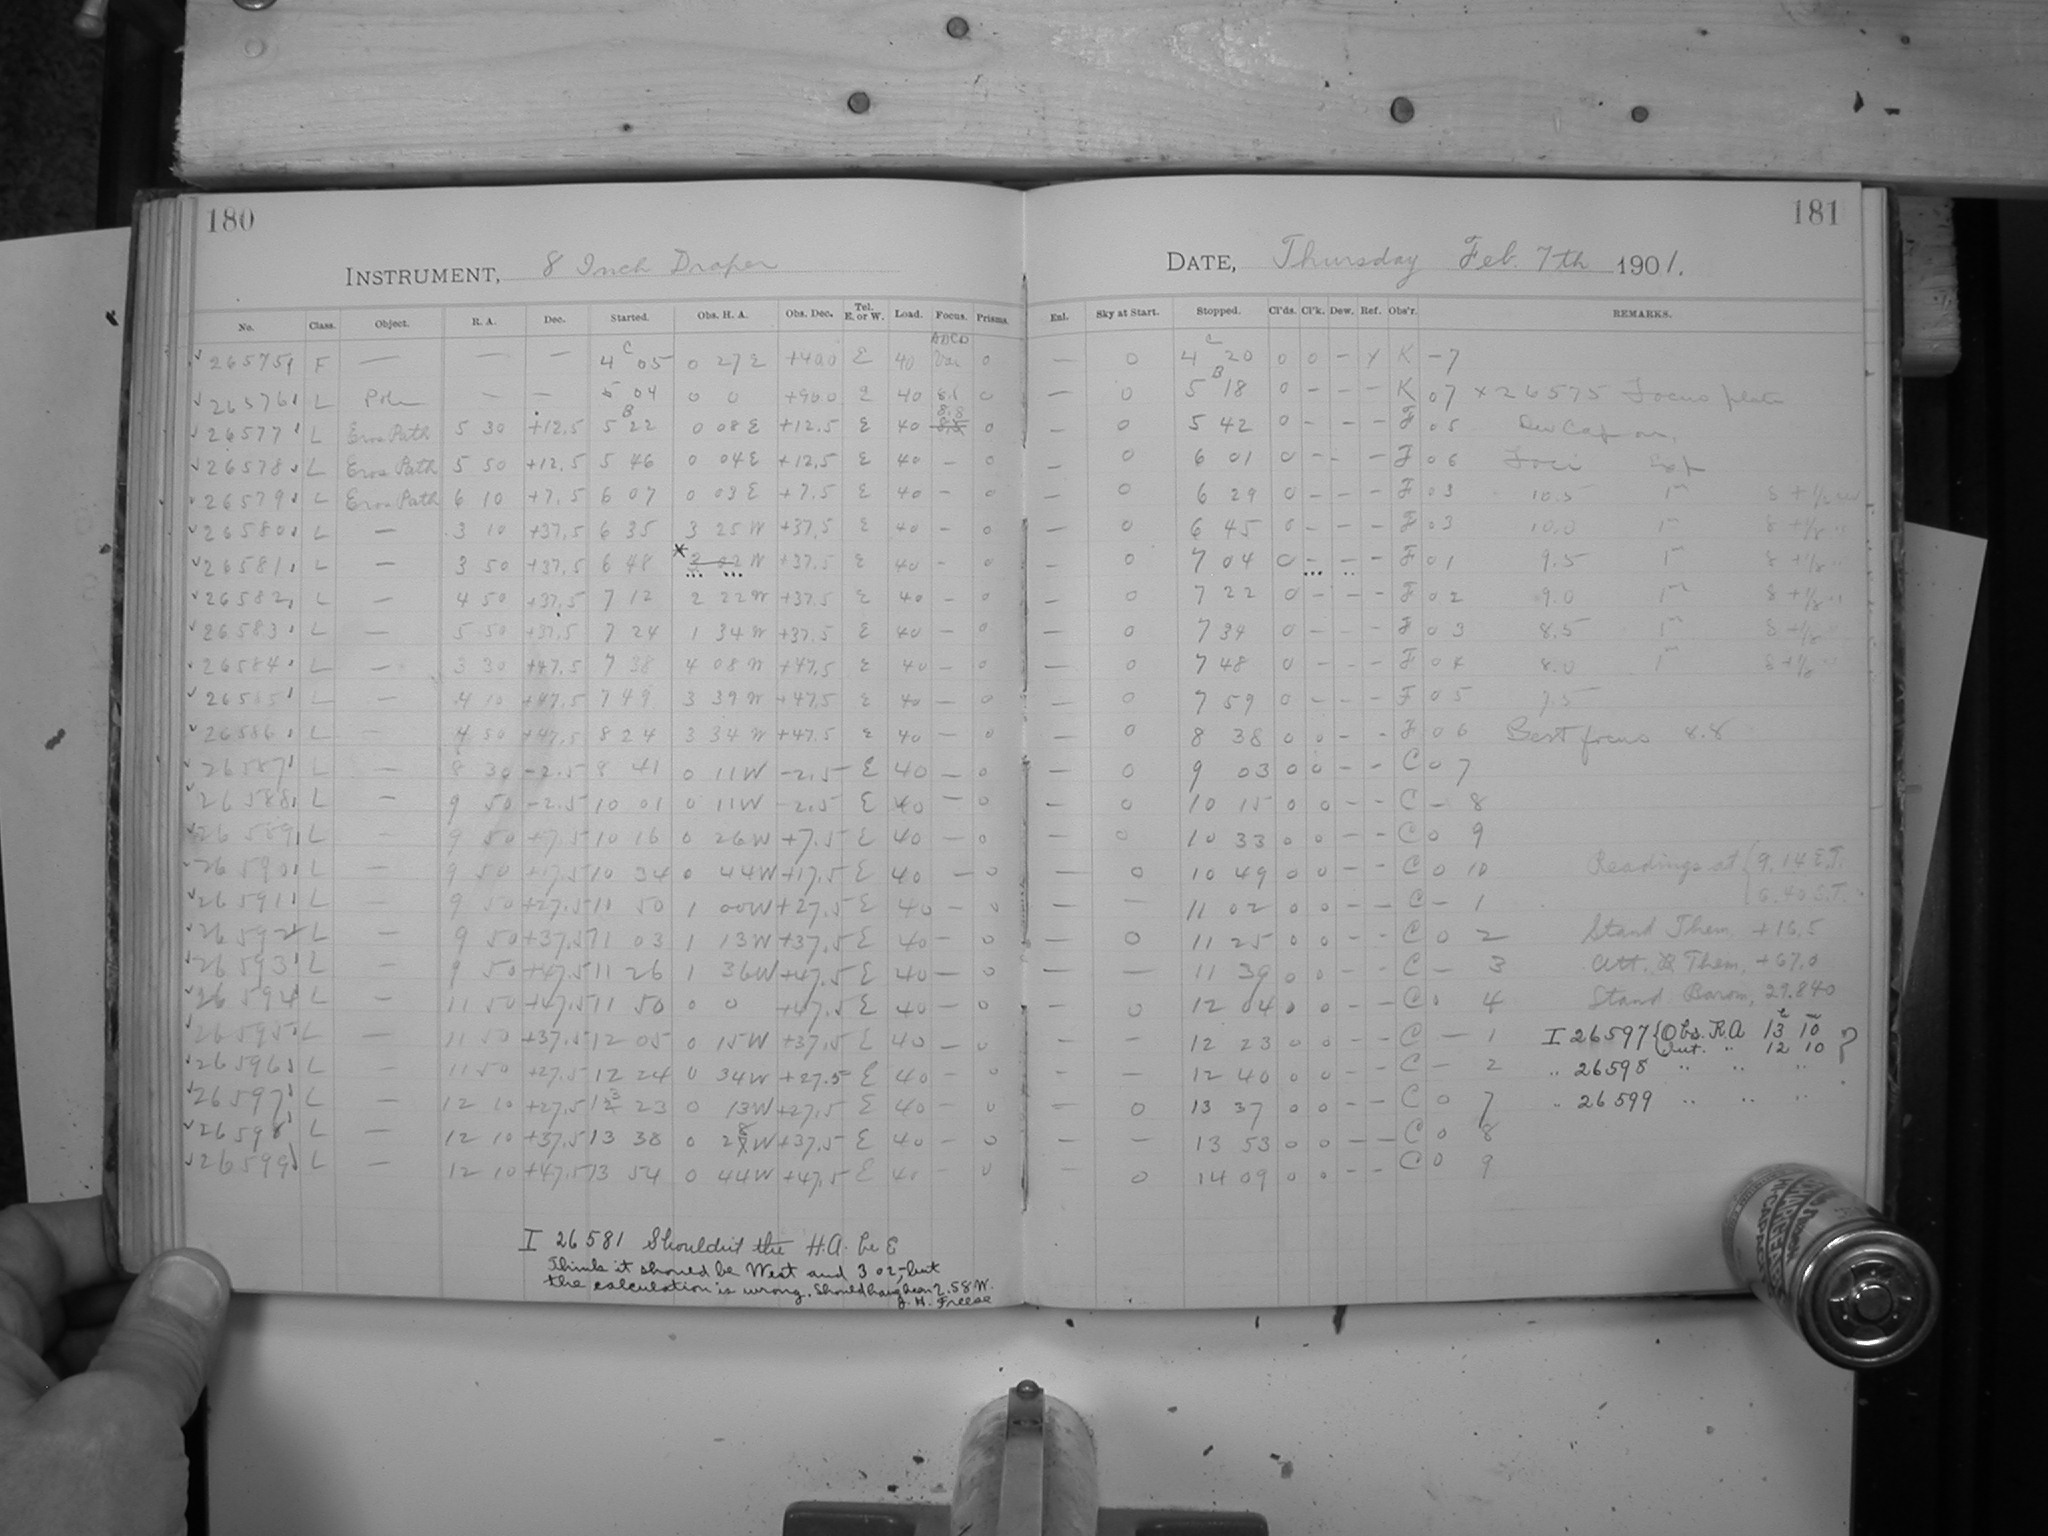 180
INSTRUMENT, 8 Inch Draper
No. Class. Object. R. A. Dec. Started. Obs. H. A. Obs. Dec. Tel. E. or W. Load. Focus. Prisms.
26575 F — — — 4 05 0 27 E +40.0 E 40 Var 0
26576 L Pole — — 5 04 0 0 +90.0 E 40 8.8 0
26577 L Eros Path 5 30 +12.5 5 22 0 08 E +12.5 E 40 0
26578 L Eros Path 5 50 +12.5 5 46 0 04 E +12.5 E 40 — 0
26579 L Eros Path 6 10 +7.5 6 07 0 03 E +7.5 E 40 — 0
26580 L — 3 10 +37.5 6 35 3 25 W +37.5 E 40 — 0
26581 L — 3 50 +37.5 6 48 * 3 02 W +37.5 E 40 — 0
26582 L — 4 50 +37.5 7 12 2 22 W +37.5 E 40 — 0
26583 L — 5 50 +37.5 7 24 1 34 W +37.5 E 40 — 0
26584 L — 3 30 +47.5 7 38 4 08 W +47.5 E 40 — 0
26585 L — 4 10 +47.5 7 49 3 39 W +47.5 E 40 — 0
26586 L — 4 50 +47.5 8 24 3 34 W +47.5 E 40 — 0
26587 L — 8 30 -2.5 8 41 0 11 W -2.5 E 40 — 0
26588 L — 9 50 -2.5 10 01 0 11 W -2.5 E 40 — 0
26589 L — 9 50 +7.5 10 16 0 26 W +7.5 E 40 — 0
26590 L — 9 50 +17.5 10 34 0 44 W +17.5 E 40 — 0
26591 L — 9 50 +27.5 11 50 1 00 W +27.5 E 40 — 0
26592 L — 9 50 +37.5 11 03 1 13 W +37.5 E 40 — 0
26593 L — 9 50 +47.5 11 26 1 36 W +47.5 E 40 — 0
26594 L — 11 50 +47.5 11 50 0 0 +47.5 E 40 — 0
26595 L — 11 50 +37.5 12 05 0 15 W +37.5 E 40 — 0
26596 L — 11 50 +27.5 12 24 0 34 W +27.5 E 40 — 0
26597 L — 12 10 +27.5 13 23 0 13 W +27.5 E 40 — 0
26598 L — 12 10 +37.5 13 38 0 28 W +37.5 E 40 — 0
26599 L — 12 10 +47.5 13 54 0 44 W +47.5 E 40 — 0
I 26581 Shouldn't the H.A. be E
Think it should be West and 3 02, but
the calculation is wrong. Should have been 2.58 W.
J. H. Freese
181
DATE, Thursday Feb. 7th 1901.
Enl. Sky at Start. Stopped. Cl'ds. Cl'k. Dew. Ref. Obs'r. REMARKS.
— 0 4 20 0 0 — Y K — 7
— 0 5 18 0 — — — K 07 × 26575 Focus plate
— 0 5 42 0 — — — F 05 Dew Cap on.
— 0 6 01 0 — — — F 06 Foci Exp
— 0 6 29 0 — — — F 03 10.5 1m
— 0 6 45 0 — — — F 03 10.0 1m 8 + 1/8 "
— 0 7 04 0 — — — F 01 9.5 1m 8 + 1/8 "
— 0 7 22 0 — — — F 02 9.0 1m 8 + 1/8 "
— 0 7 34 0 — — — F 03 8.5 1m 8 + 1/8 "
— 0 7 48 0 — — — F 04 8.0 1m 8 + 1/8 "
— 0 7 59 0 — — — F 05 7.5
— 0 8 38 0 0 — — F 06 Best focus 8.8
— 0 9 03 0 0 — — C 0 7
— 0 10 15 0 0 — — C — 8
— 0 10 33 0 0 — — C 0 9
— 0 10 49 0 0 — — C 0 10 Readings at { 9.14 E.T.
6.40 S.T.
— — 11 02 0 0 — — C — 1
— 0 11 25 0 0 — — C 0 2 Stand Them, +16.5
— — 11 39 0 0 — — C — 3 Att. Them, +67.0
— 0 12 04 0 0 — — C 0 4 Stand. Barom, 29.840
— — 12 23 0 0 — — C — 1 I 26597 { Obs. R.A 13h 10m
but. " 12 10 ?
— — 12 40 0 0 — — C — 2 " 26598 " " "
— 0 13 37 0 0 — — C 0 7 " 26599 " " "
— — 13 53 0 0 — — C 0 8
— 0 14 09 0 0 — — C 0 9